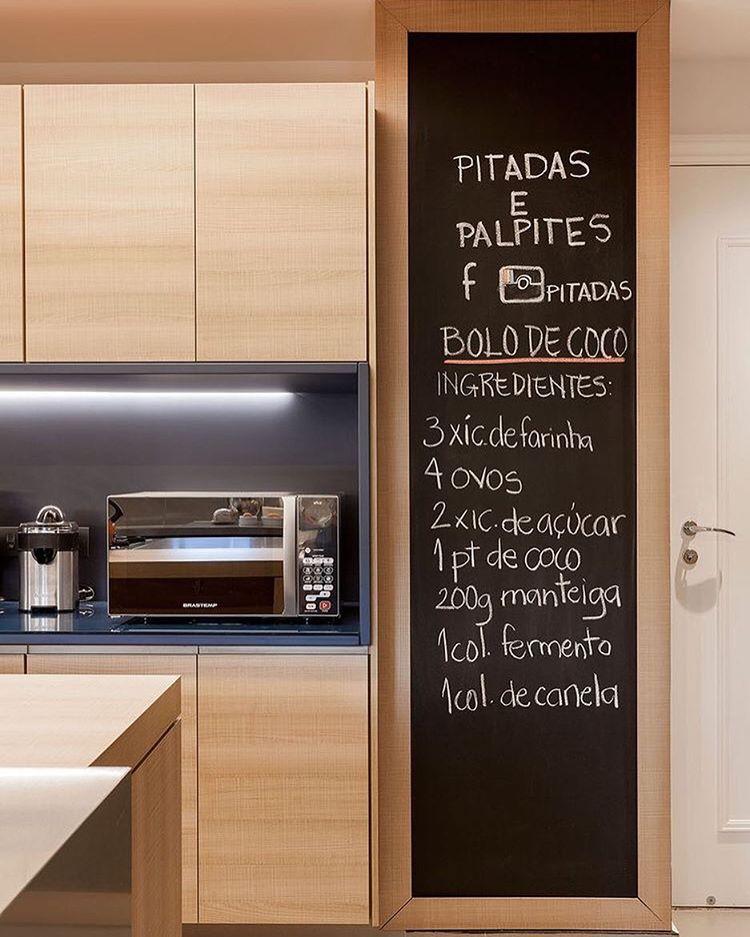 PITADAS
E
PALPITES
f PITADAS
BOLO DE COCO
INGREDIENTES:
3 xíc. de farinha
4 ovos
2 xic. de açúcar
1 pt de coco
200g manteiga
1 col. fermento
1 col. de canela
BRASTEMP